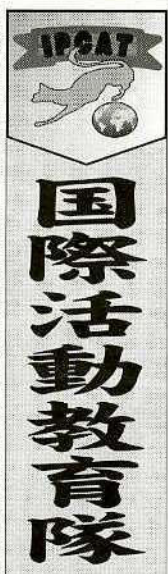 IPCAT
国際活動教育隊